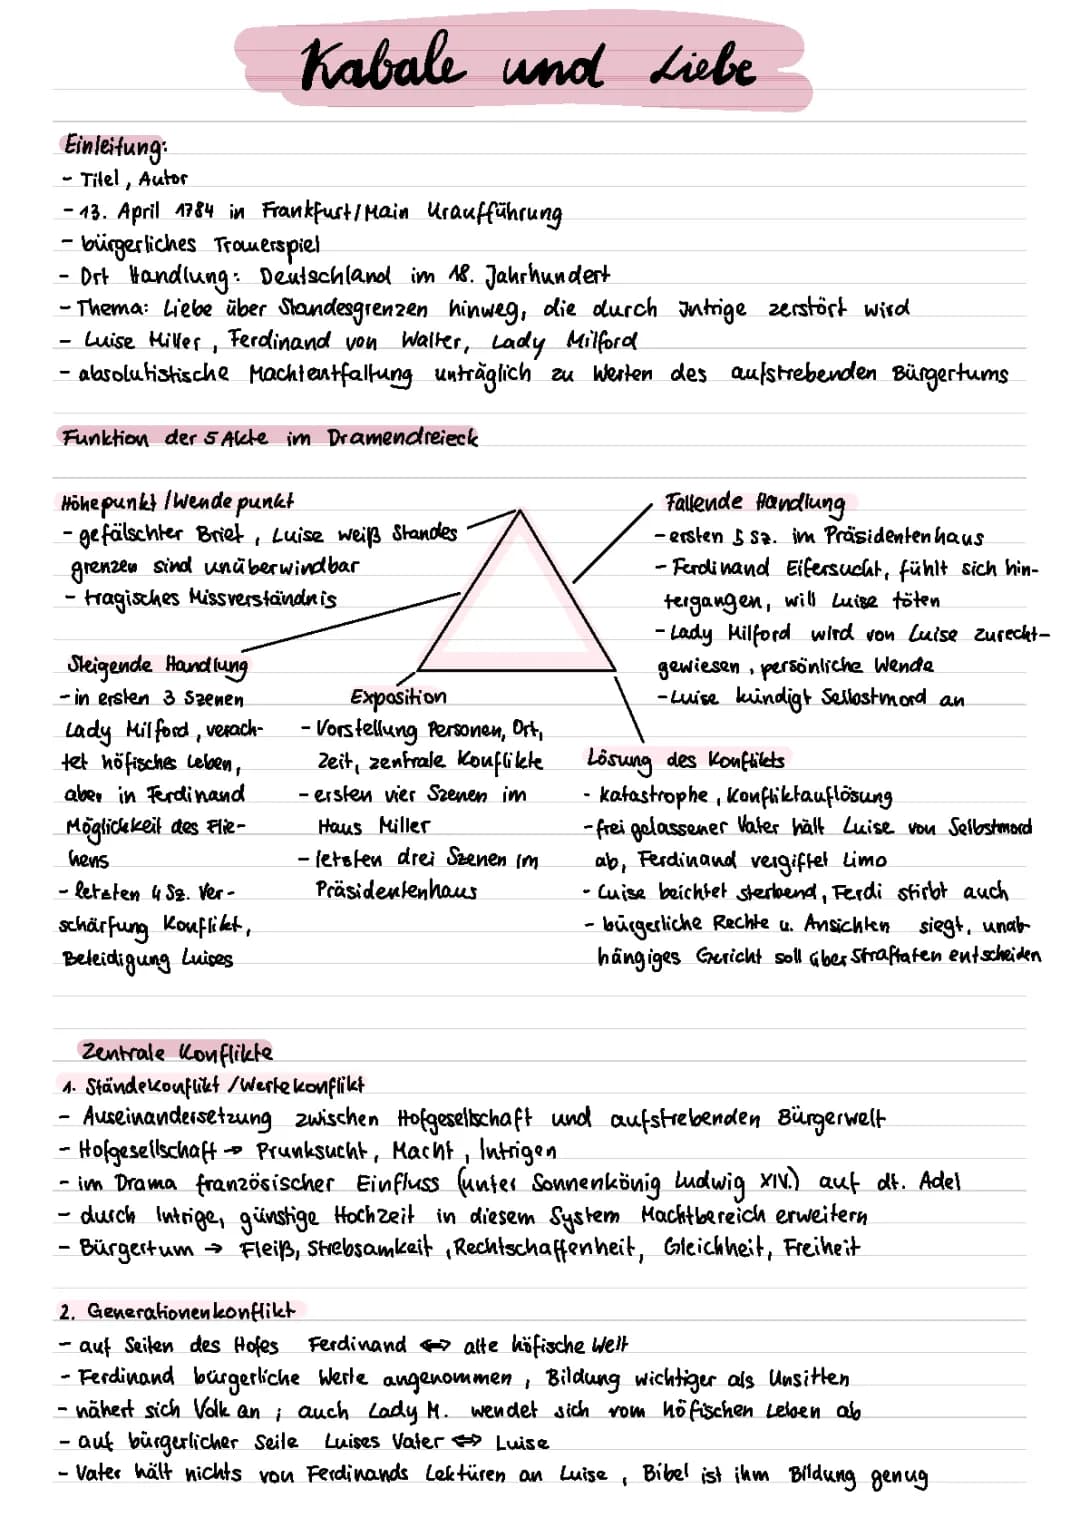 Kabale und Liebe
Einleitung:
- Titel, Autor
- 13. April 1784 in Frankfurt/Main Uraufführung
- bürgerliches Trauerspiel
- Ort Handlung: Deutschland im 18. Jahrhundert
- Thema: Liebe über Standesgrenzen hinweg, die durch Intrige zerstört wird
- Luise Miller, Ferdinand von Walter, Lady Milford
- absolutistische Machtentfaltung unträglich zu Werten des aufstrebenden Bürgertums
Funktion der 5 Akte im Dramendreieck
Höhepunkt / Wendepunkt
- gefälschter Brief, Luise weiß Standes
grenzen sind unüberwindbar
- tragisches Missverständnis
Fallende Handlung
- ersten 5 Sz. im Präsidentenhaus
- Ferdinand Eifersucht, fühlt sich hin-
tergangen, will Luise töten
- Lady Milford wird von Luise zurecht-
gewiesen, persönliche Wende
- Luise kündigt Selbstmord an
Steigende Handlung
- in ersten 3 Szenen
Lady Milford, verach-
tet höfisches Leben,
aber in Ferdinand
Möglichkeit des Flie-
hens
- letzten 4 Sz. Ver-
schärfung Konflikt,
Beleidigung Luises
Exposition
- Vorstellung Personen, Ort,
Zeit, zentrale Konflikte
- ersten vier Szenen im
Haus Miller
- letzten drei Szenen im
Präsidentenhaus
Lösung des Konflikts
- katastrophe, Konfliktauflösung
- frei gelassener Vater hält Luise von Selbstmord
ab, Ferdinand vergiftet Limo
- Luise beichtet sterbend, Ferdi stirbt auch
- bürgerliche Rechte u. Ansichten siegt, unab-
hängiges Gericht soll über Straftaten entscheiden
Zentrale Konflikte
1. Ständekonflikt / Wertekonflikt
- Auseinandersetzung zwischen Hofgesellschaft und aufstrebenden Bürgerwelt
- Hofgesellschaft → Prunksucht, Macht, Intrigen
- im Drama französischer Einfluss (unter Sonnenkönig Ludwig XIV.) auf dt. Adel
- durch Intrige, günstige Hochzeit in diesem System Machtbereich erweitern
- Bürgertum → Fleiß, Strebsamkeit, Rechtschaffenheit, Gleichheit, Freiheit
2. Generationenkonflikt
- auf Seiten des Hofes Ferdinand ⇔ alte höfische Welt
- Ferdinand bürgerliche Werte angenommen, Bildung wichtiger als Unsitten
- nähert sich Volk an ; auch Lady M. wendet sich vom höfischen Leben ab
- auf bürgerlicher Seite Luises Vater ⇔ Luise
- Vater hält nichts von Ferdinands Lektüren an Luise, Bibel ist ihm Bildung genug